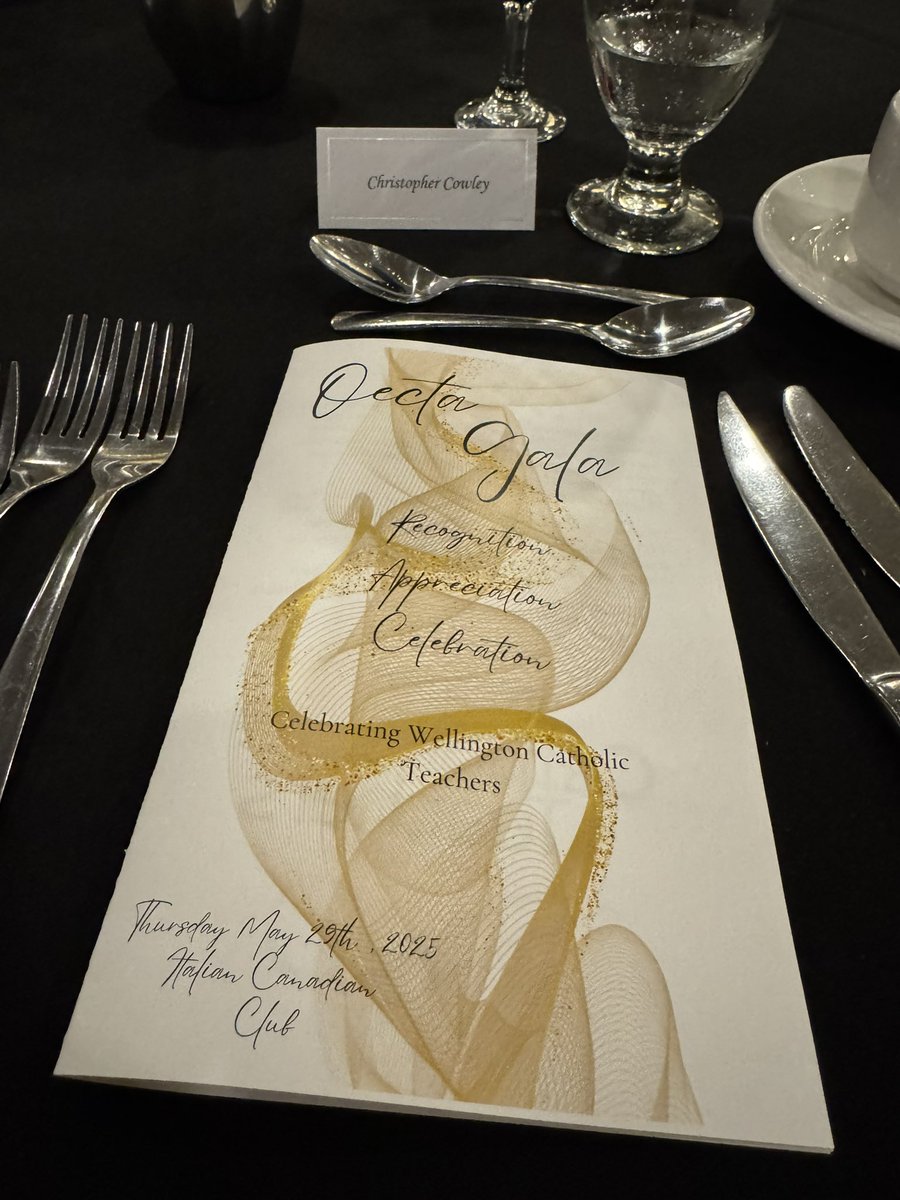 Christopher Cowley
Oecta
Gala
Recognition
Appreciation
Celebration
Celebrating Wellington Catholic
Teachers
Thursday May 29th , 2025
Italian Canadian
Club